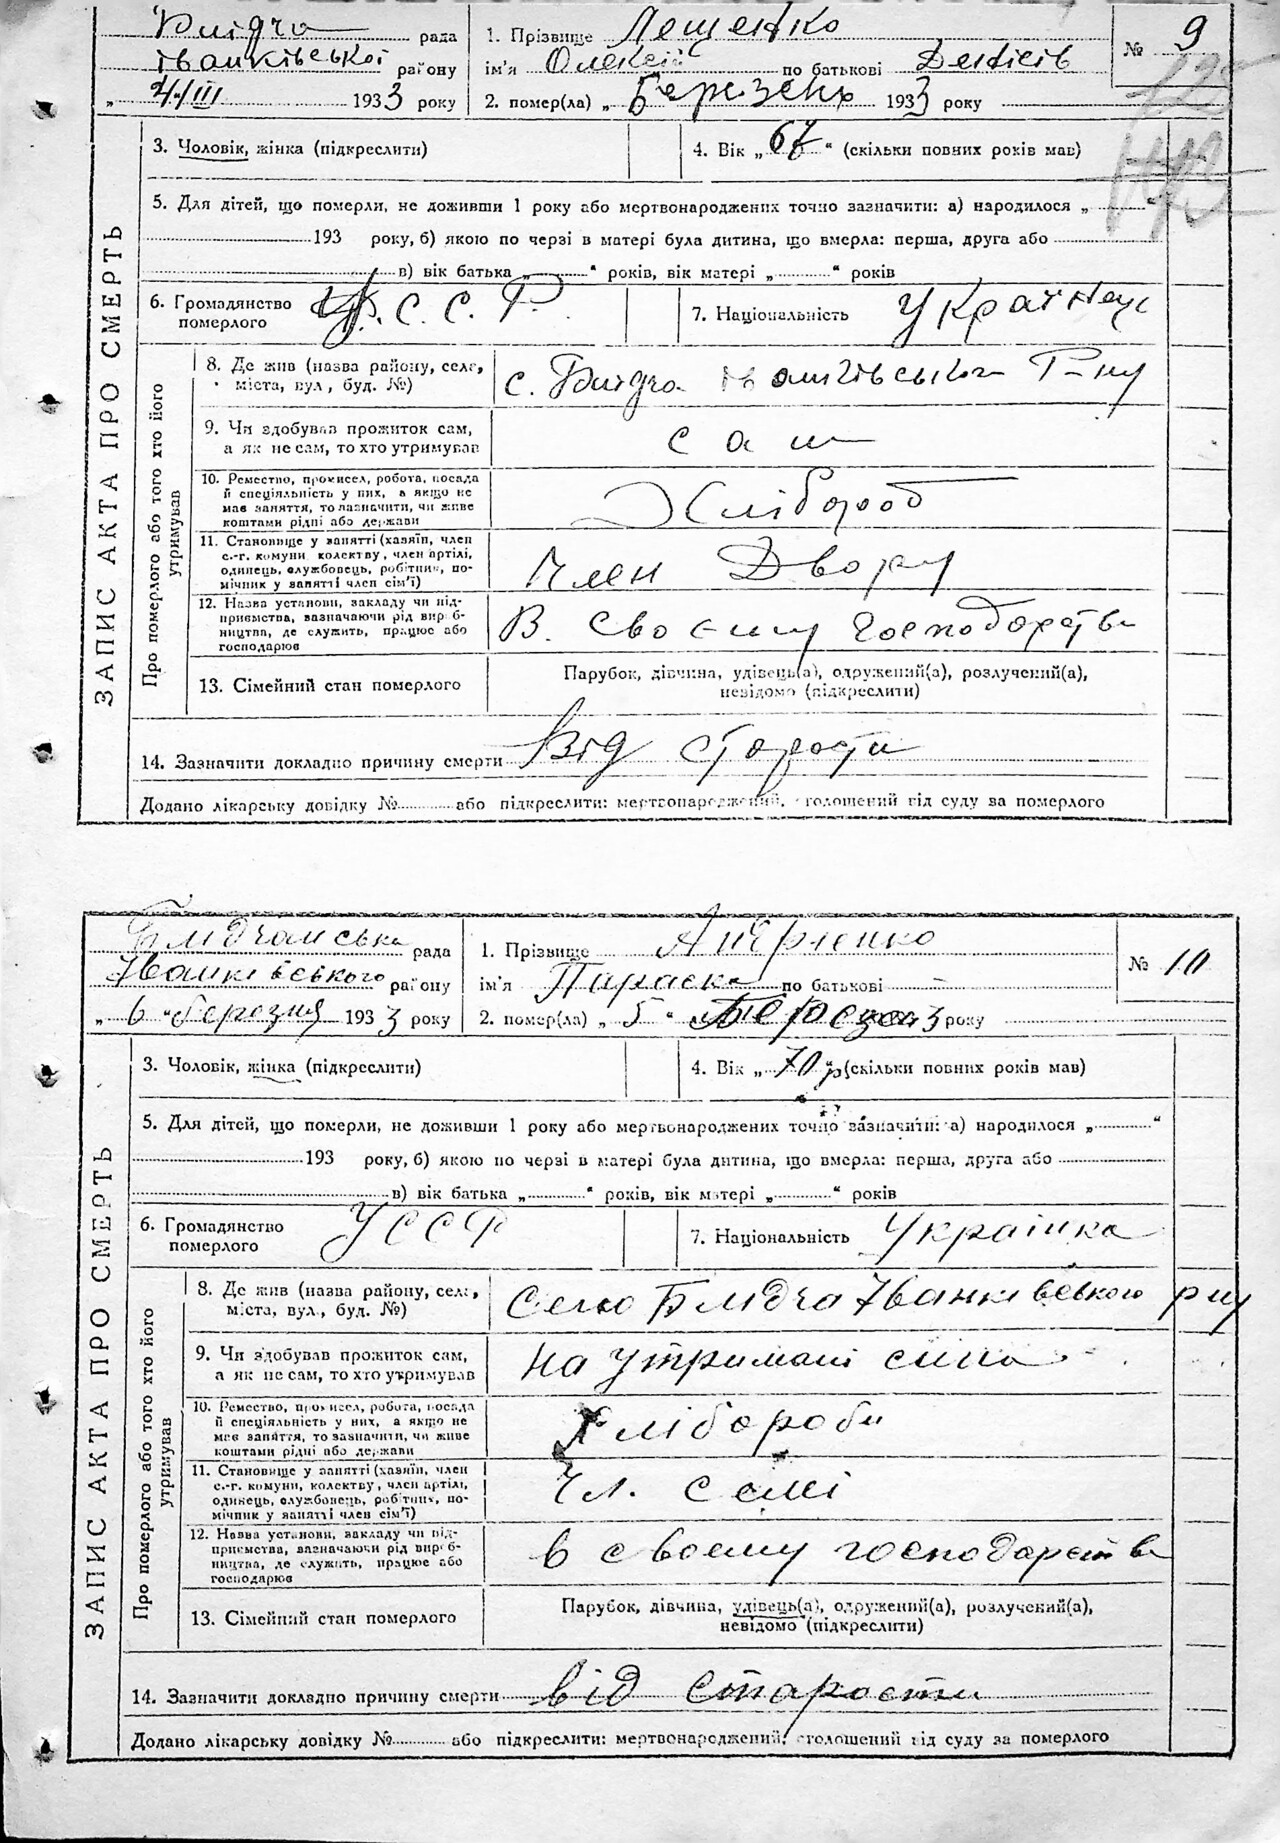 Блідча рада
іванківської району
„ 4/III 1933 року
1. Прізвище Лещенко
ім'я Олексій по батькові Денисів
2. помер(ла) „ Березень 1933 року
№ 9
ЗАПИС АКТА ПРО СМЕРТЬ
3. Чоловік, жінка (підкреслити)
4. Вік „ 67 “ (скільки повних років мав)
5. Для дітей, що померли, не доживши 1 року або мертвонароджених точно зазначити: а) народилося „ “
193 року, б) якою по черзі в матері була дитина, що вмерла: перша, друга або
в) вік батька „ “ років, вік матері „ “ років
6. Громадянство
померлого
У.С.С.Р.
7. Національність Українец
Про померлого або того хто його
утримував
8. Де жив (назва району, села,
міста, вул., буд. №)
с. Блідча іванківського Р-ну
9. Чи здобував прожиток сам,
а як не сам, то хто утримував
сам
10. Ремество, промисел, робота, посада
й спеціяльність у них, а якщо не
має заняття, то зазначити, чи живе
коштами рідні або держави
Хлібороб
11. Становище у занятті (хазяїн, член
с.-г. комуни колективу, член артілі,
одинець, службовець, робітник, по-
мічник у занятті член сім'ї)
Член Двору
12. Назва установи, закладу чи під-
приємства, зазначаючи рід вироб-
ництва, де служить, працює або
господарює
В. своєму господарстві
13. Сімейний стан померлого
Парубок, дівчина, удівець(а), одружений(а), розлучений(а),
невідомо (підкреслити)
14. Зазначити докладно причину смерти Від старости
Додано лікарську довідку № або підкреслити: мертвонароджений, оголошений від суду за померлого
Блідчанська рада
Іванківського району
„ 6 “ березня 1933 року
1. Прізвище
ім'я Параска по батькові –
2. помер(ла) „ 5 “ Березня 3 року
№ 10
ЗАПИС АКТА ПРО СМЕРТЬ
3. Чоловік, жінка (підкреслити)
4. Вік „ 70 р (скільки повних років мав)
5. Для дітей, що померли, не доживши 1 року або мертвонароджених точно зазначити: а) народилося „ “
193 року, б) якою по черзі в матері була дитина, що вмерла: перша, друга або
в) вік батька „ “ років, вік матері „ “ років
6. Громадянство
померлого
УССР
7. Національність Українка
Про померлого або того хто його
утримував
8. Де жив (назва району, села,
міста, вул., буд. №)
Село Блідча Іванківського рну
9. Чи здобував прожиток сам,
а як не сам, то хто утримував
на утримані сина
10. Ремество, промисел, робота, посада
й спеціяльність у них, а якщо не
має заняття, то зазначити, чи живе
коштами рідні або держави
Хлібороби
11. Становище у занятті (хазяїн, член
с.-г. комуни, колективу, член артілі,
одинець, службовець, робітник, по-
мічник у занятті член сім'ї)
Чл. семі
12. Назва установи, закладу чи під-
приємства, зазначаючи рід вироб-
ництва, де служить, працює або
господарює
в своєму господарстві
13. Сімейний стан померлого
Парубок, дівчина, удівець(а), одружений(а), розлучений(а),
невідомо (підкреслити)
14. Зазначити докладно причину смерти від старости
Додано лікарську довідку № або підкреслити: мертвонароджений, оголошений від суду за померлого